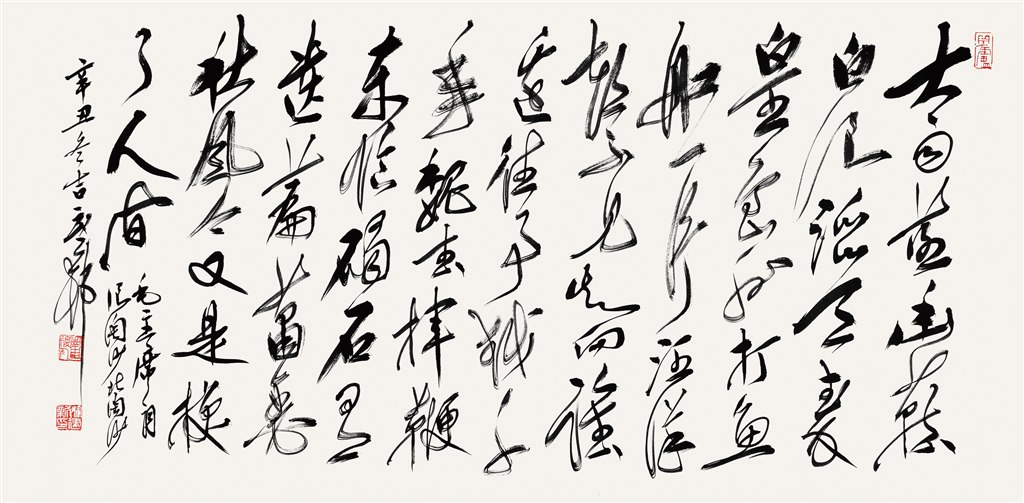 大雨落幽燕
白浪滔天秦
皇岛外打鱼
船一片汪洋
都不见知向谁
边往事越千
年魏武挥鞭
东临碣石有
遗篇萧瑟
秋风今又是换
了人间
毛主席词
浪淘沙北
辛丑冬吉